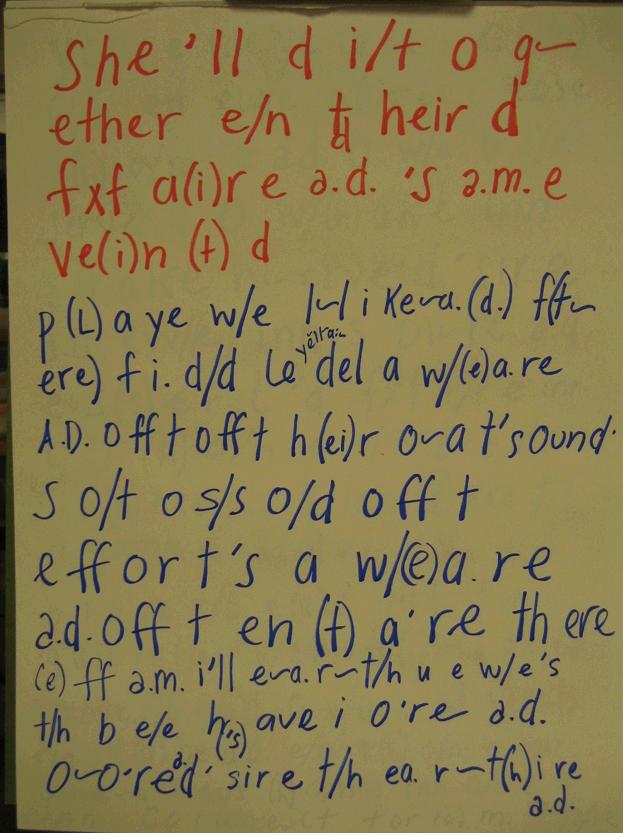 She'll d i/t o g~
ether e/n t heir d
fxf a(i)r e a.d. 's a.m. e
ve(i)n (t) d
p(L)a ye w/e l~l i Ke~a.(d.) f(t~
ere) f i. d/d Le'del a w/(e)a.re
A.D. off t off t h(ei)r o~a t's ound.
s o/t o s/s o/d off t
effor t's a w/(e)a.re
a.d. off t en (t) a're there
(e) ff a.m. i'll e~a.r~t/h u e w/e's
t/h b e/e h('s) ave i o're a.d.
o~o're a d' sir e t/h ea. r~t(h)i re
a.d.